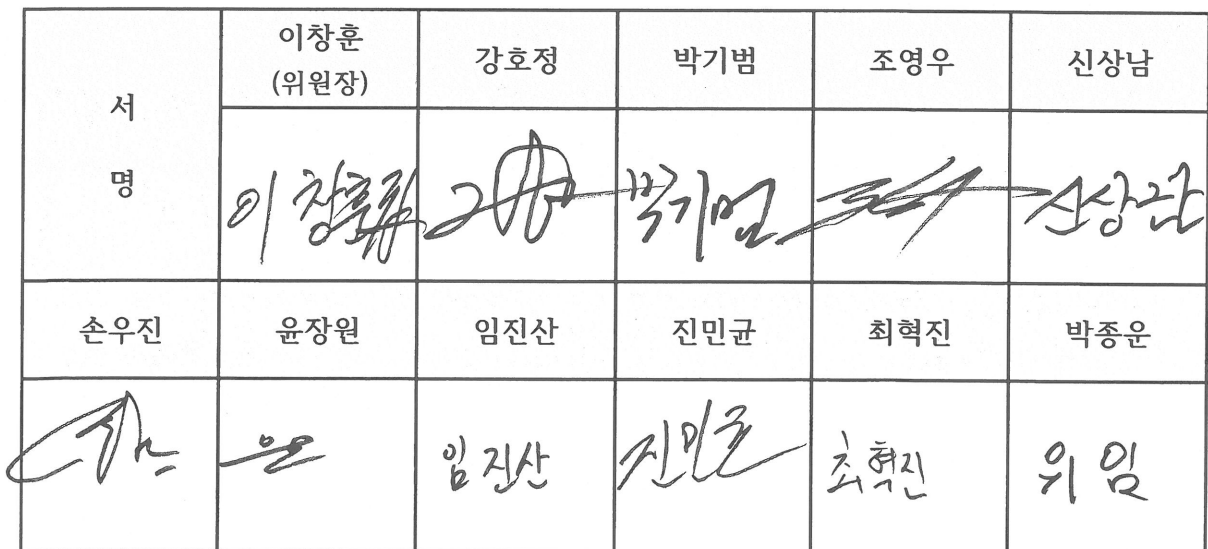 서
명
이창훈
(위원장)
강호정
박기범
조영우
신상남
이창훈
박기범
신상남
손우진
윤장원
임진산
진민균
최혁진
박종운
임진산
진민균
최혁진
위임